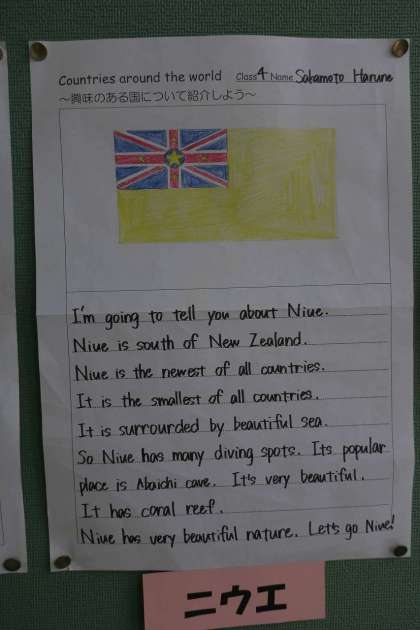 Countries around the world Class 4 Name Sakamoto Harune
～興味のある国について紹介しよう～
I'm going to tell you about Niue.
Niue is south of New Zealand.
Niue is the newest of all countries.
It is the smallest of all countries.
It is surrourded by beautiful sea.
So Niue has many diving spots. Its popular
place is Abaichi cave. It's very beautiful.
It has coral reef.
Niue has very beautiful nature. Let's go Niue!
ニウエ